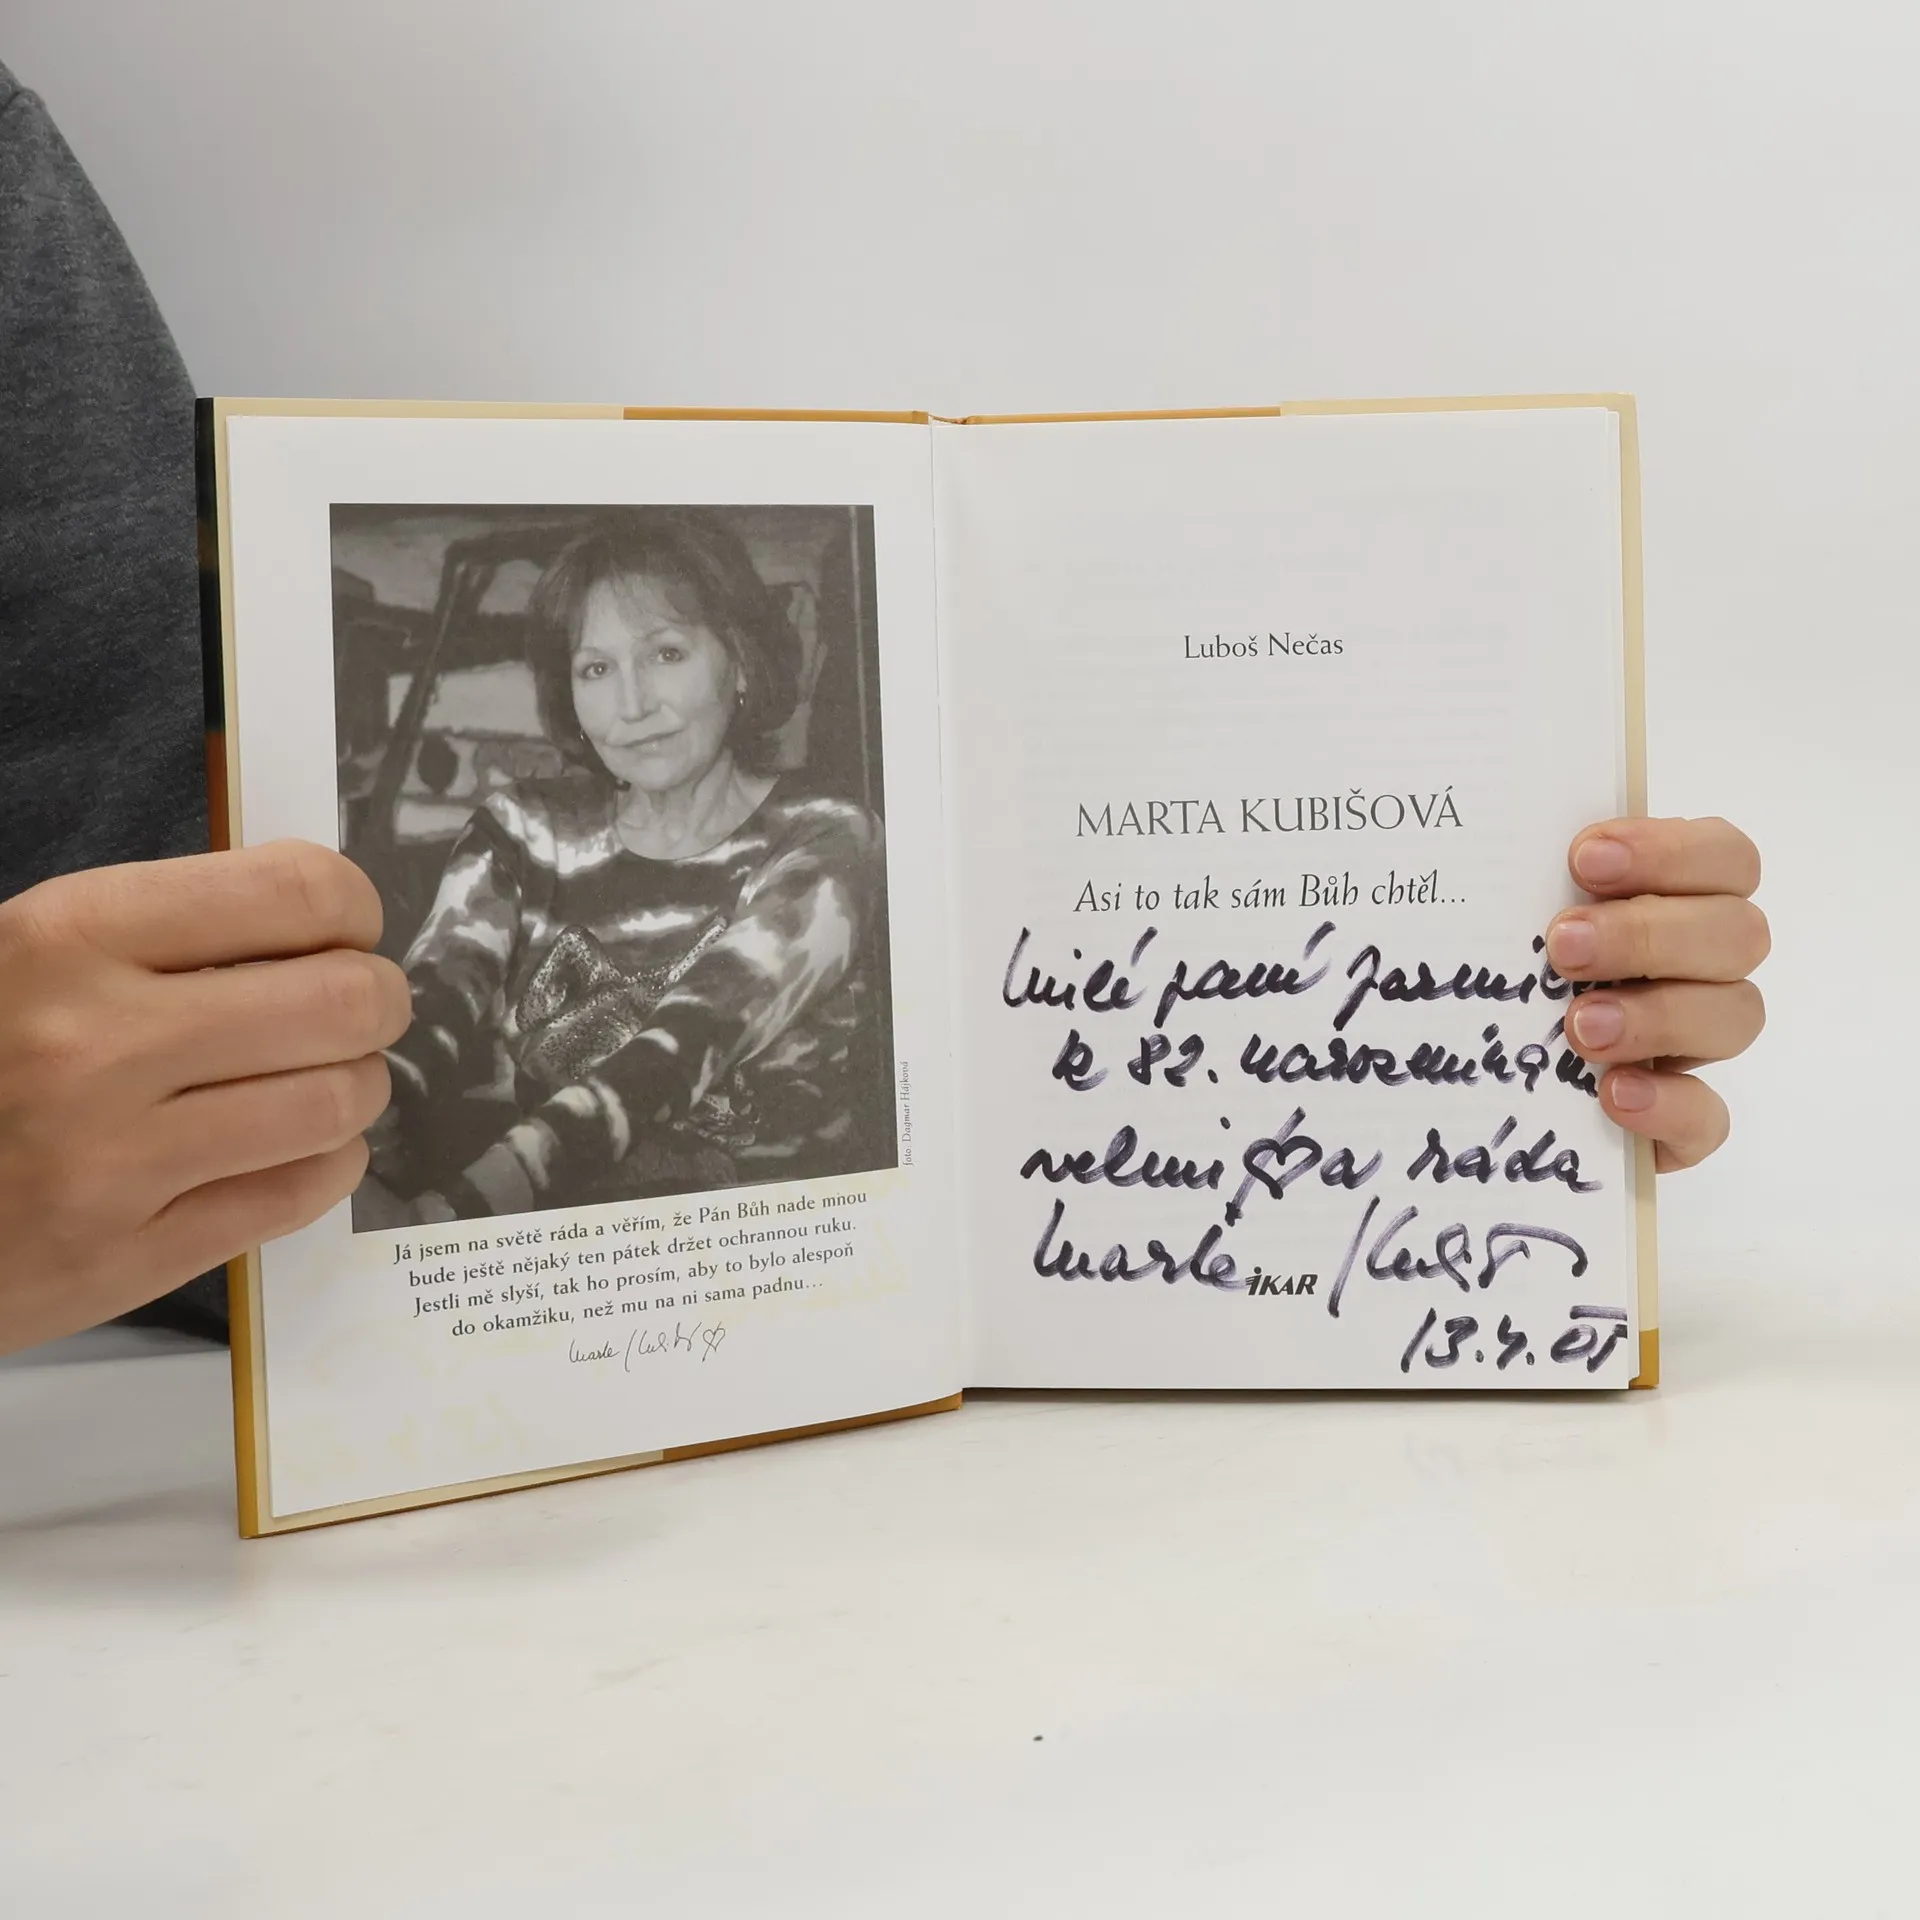 foto: Dagmar Hájková
Já jsem na světě ráda a věřím, že Pán Bůh nade mnou
bude ještě nějaký ten pátek držet ochrannou ruku.
Jestli mě slyší, tak ho prosím, aby to bylo alespoň
do okamžiku, než mu na ni sama padnu...
Luboš Nečas
MARTA KUBIŠOVÁ
Asi to tak sám Bůh chtěl...
milé paní Jarmil
k 82. narozeninám
velmi ♡ a ráda
Marta Kubišová
IKAR
13.4.05